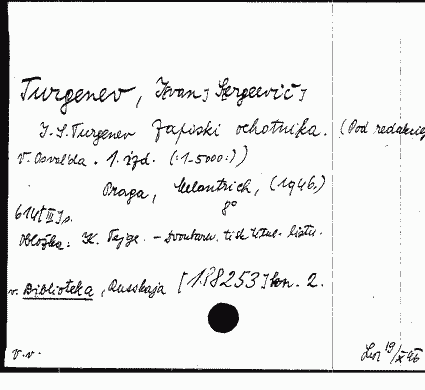 Turgenev, Ivan] Sergeevič]
I. S. Turgenev Zapiski ochotnika. (Pod redakciej
V. Osval'da. 1. izd. (:1-5000:))
Praga, Melantrich, (1946.)
8°
614[III]s.
Obložka: K. Tejge. - Dvoubarv. tisk titul. listu.
v. Biblioteka, Russkaja [188253] kn. 2.
v.v. 19/X 46